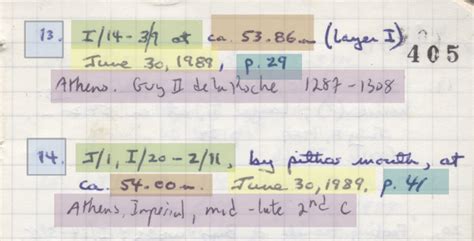 13. I/14-3/9 at ca. 53.86m (Layer I)
405
June 30, 1989, p. 29
Athens. Guy II de la Roche 1287-1308
14. J/1, I/20-2/11, by pithos mouth, at
ca. 54.00m. June 30, 1989, p. 41
Athens, Imperial, mid-late 2nd C